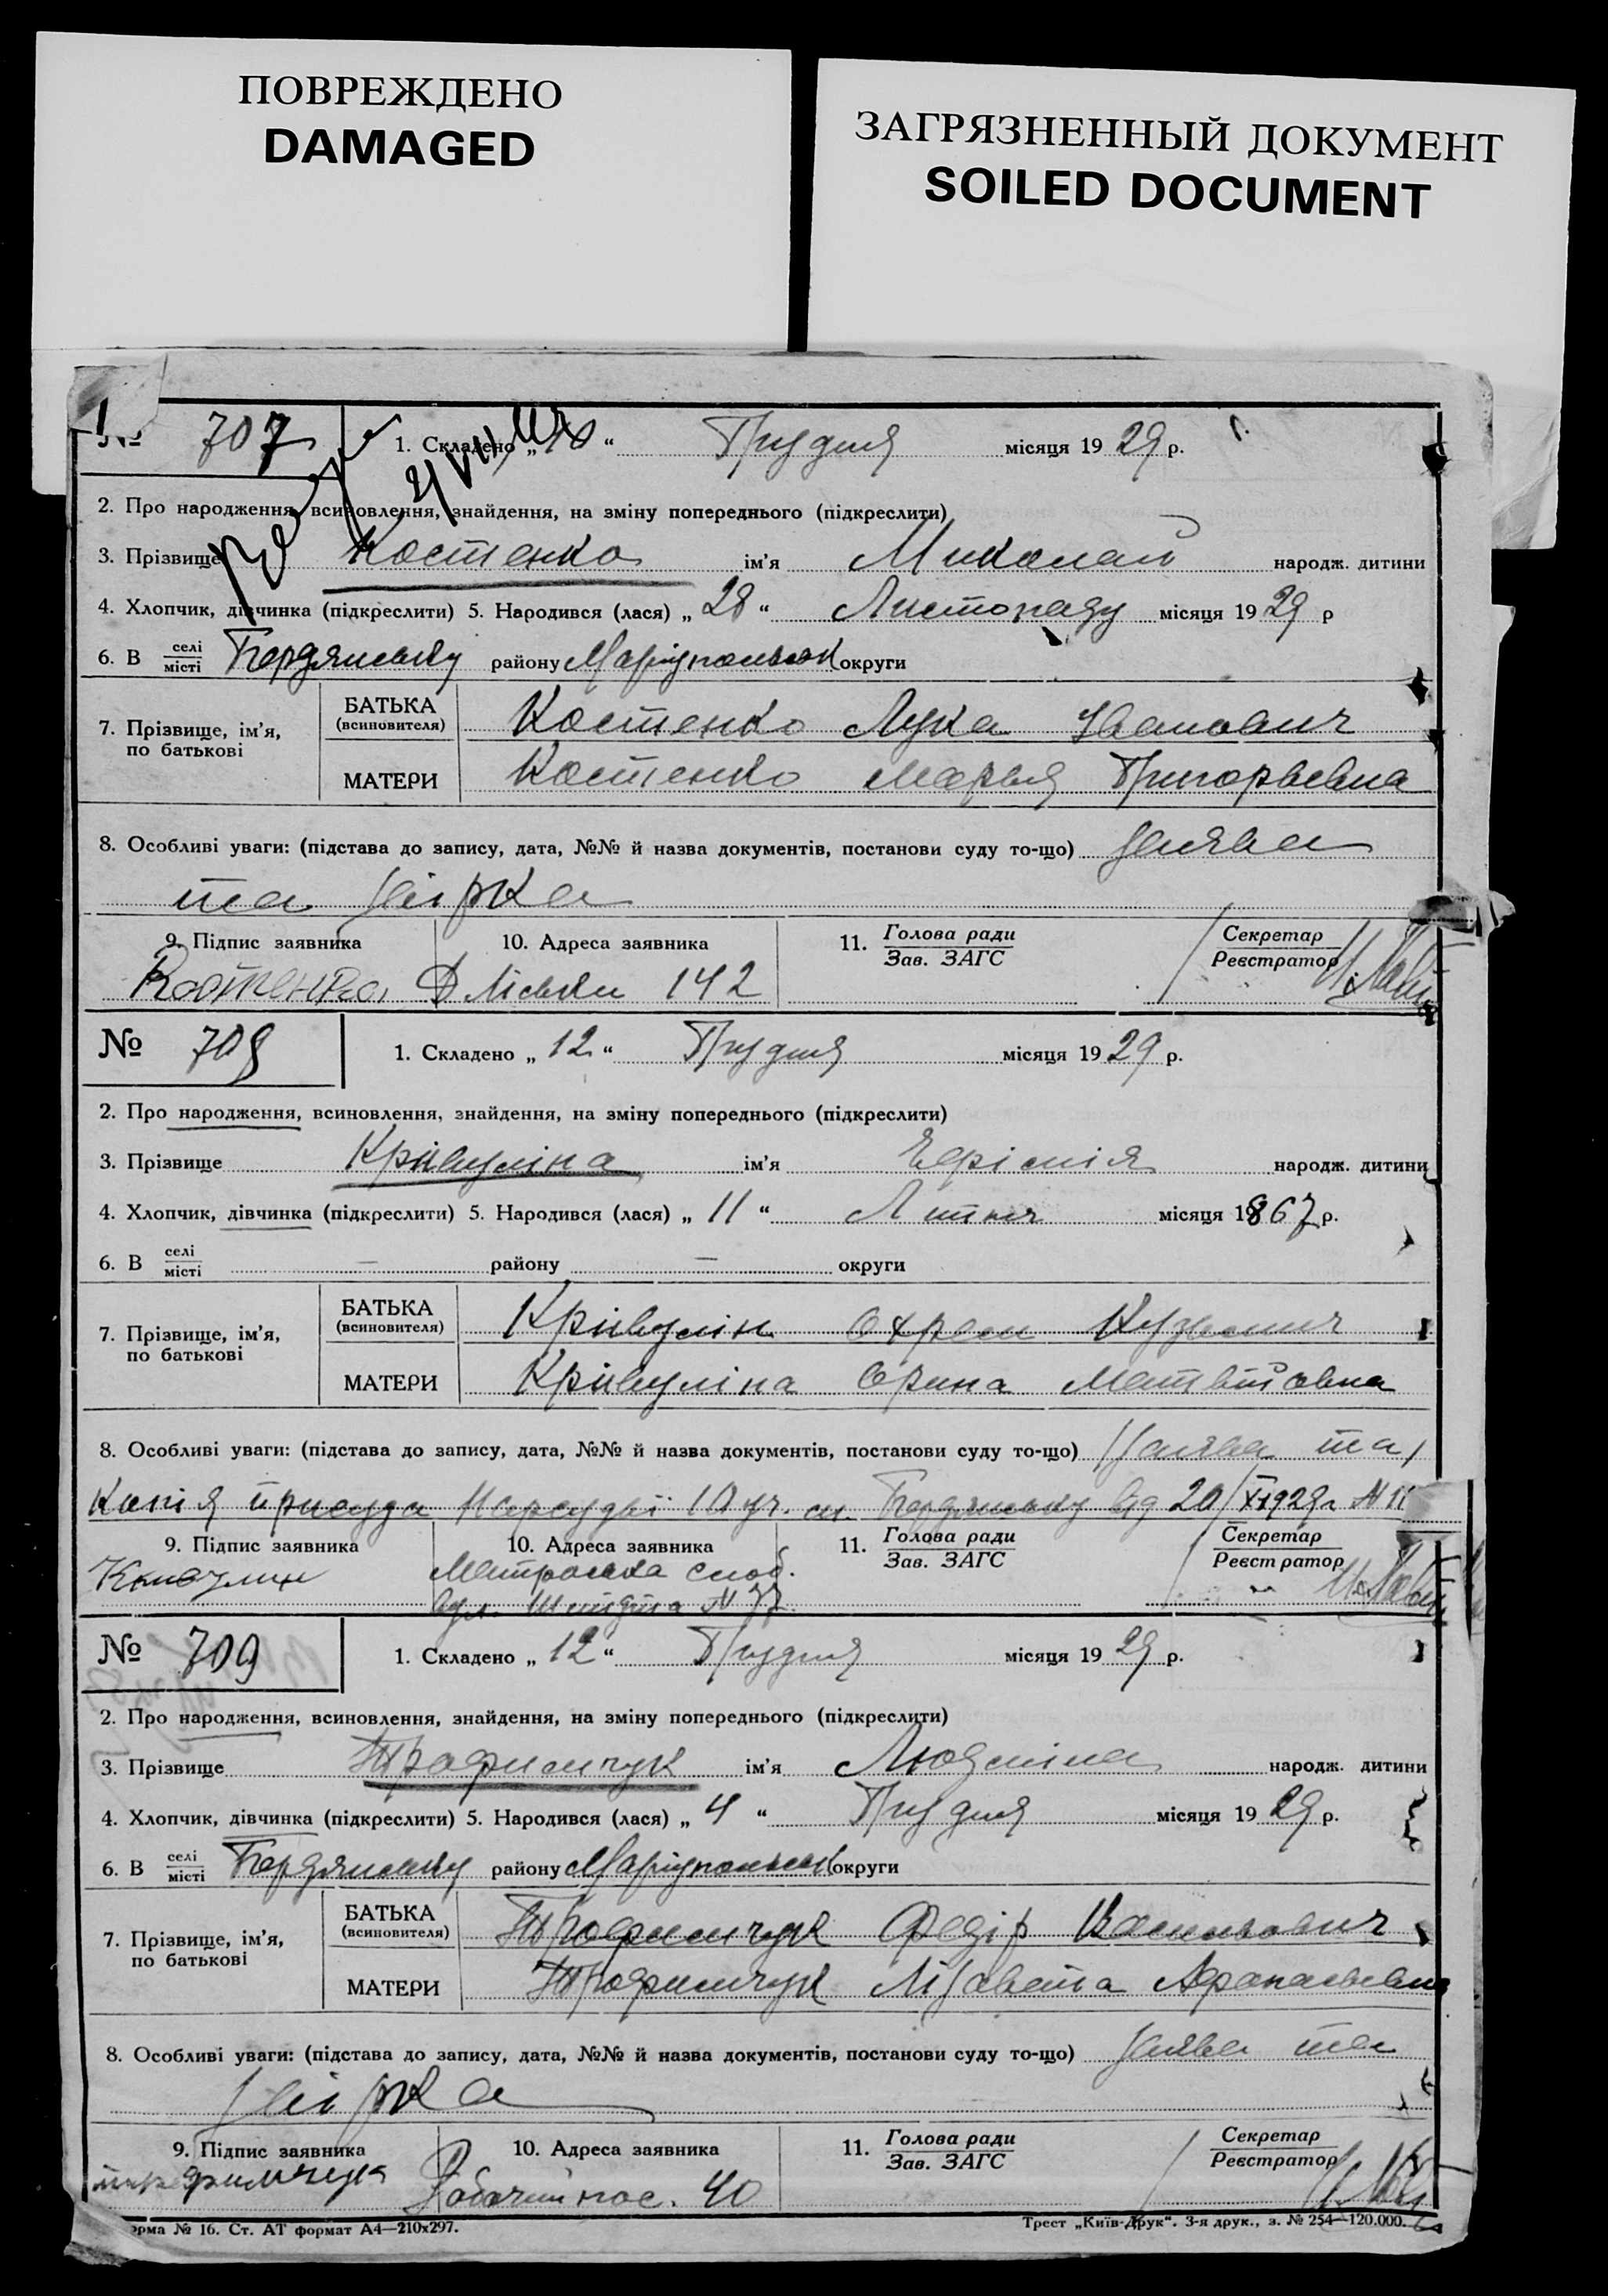 ПОВРЕЖДЕНО
DAMAGED
ЗАГРЯЗНЕННЫЙ ДОКУМЕНТ
SOILED DOCUMENT
№ 707 1. Складено „10“ Грудня місяця 1929 р.
2. Про народження, всиновлення, знайдення, на зміну попереднього (підкреслити)
3. Прізвище Костенко ім'я Миколай народж. дитини
4. Хлопчик, дівчинка (підкреслити) 5. Народився (лася) „28“ Листопаду місяця 1929 р
6. В селі місті Бердянську району Маріупольськ округи
7. Прізвище, ім'я, по батькові
БАТЬКА (всиновителя) Костенко Лука Іванович
МАТЕРИ Костенко Марья Григорьевна
8. Особливі уваги: (підстава до запису, дата, №№ й назва документів, постанови суду то-що) Заява
та
9. Підпис заявника 10. Адреса заявника 11. Голова ради Зав. ЗАГС Секретар Реєстратор
Костенко 142
№ 708 1. Складено „12“ Грудня місяця 1929 р.
2. Про народження, всиновлення, знайдення, на зміну попереднього (підкреслити)
3. Прізвище Крівуліна ім'я Ефімія народж. дитини
4. Хлопчик, дівчинка (підкреслити) 5. Народився (лася) „11“ Липня місяця 1867 р.
6. В селі місті — району — округи
7. Прізвище, ім'я, по батькові
БАТЬКА (всиновителя) Крівулін Охрем Кузьмич
МАТЕРИ Крівуліна Орина Матвійовна
8. Особливі уваги: (підстава до запису, дата, №№ й назва документів, постанови суду то-що) Заява та
Копія присуда Нарсудді 10 уч. м. Бердянську від 20/XI 1929 р. № 11
9. Підпис заявника 10. Адреса заявника 11. Голова ради Зав. ЗАГС Секретар Реєстратор
Матроська слоб.
вул. Шмідта № 77
№ 709 1. Складено „12“ Грудня місяця 1929 р.
2. Про народження, всиновлення, знайдення, на зміну попереднього (підкреслити)
3. Прізвище Трофимчук ім'я Людміла народж. дитини
4. Хлопчик, дівчинка (підкреслити) 5. Народився (лася) „4“ Грудня місяця 1929 р.
6. В селі місті Бердянську району Маріупольськ округи
7. Прізвище, ім'я, по батькові
БАТЬКА (всиновителя) Трофимчук Федір Васильович
МАТЕРИ Трофимчук Лізавета Афанасьевна
8. Особливі уваги: (підстава до запису, дата, №№ й назва документів, постанови суду то-що) Заява та
9. Підпис заявника 10. Адреса заявника 11. Голова ради Зав. ЗАГС Секретар Реєстратор
Трофимчук Рабочий пос. 40
орма № 16. Ст. АТ формат А4—210x297. Трест „Київ-Друк“. 3-я друк., з. № 254—120.000.